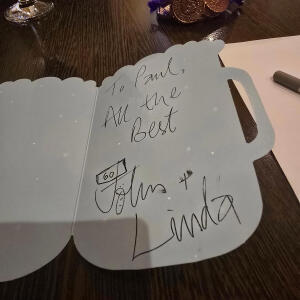 To Paul,
All the
Best
John +
Linda